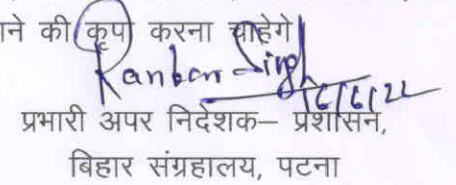 ाने की कृपा करना चाहेगे
Ranbir Singh
16/6/22
प्रभारी अपर निदेशक– प्रशासन,
बिहार संग्रहालय, पटना